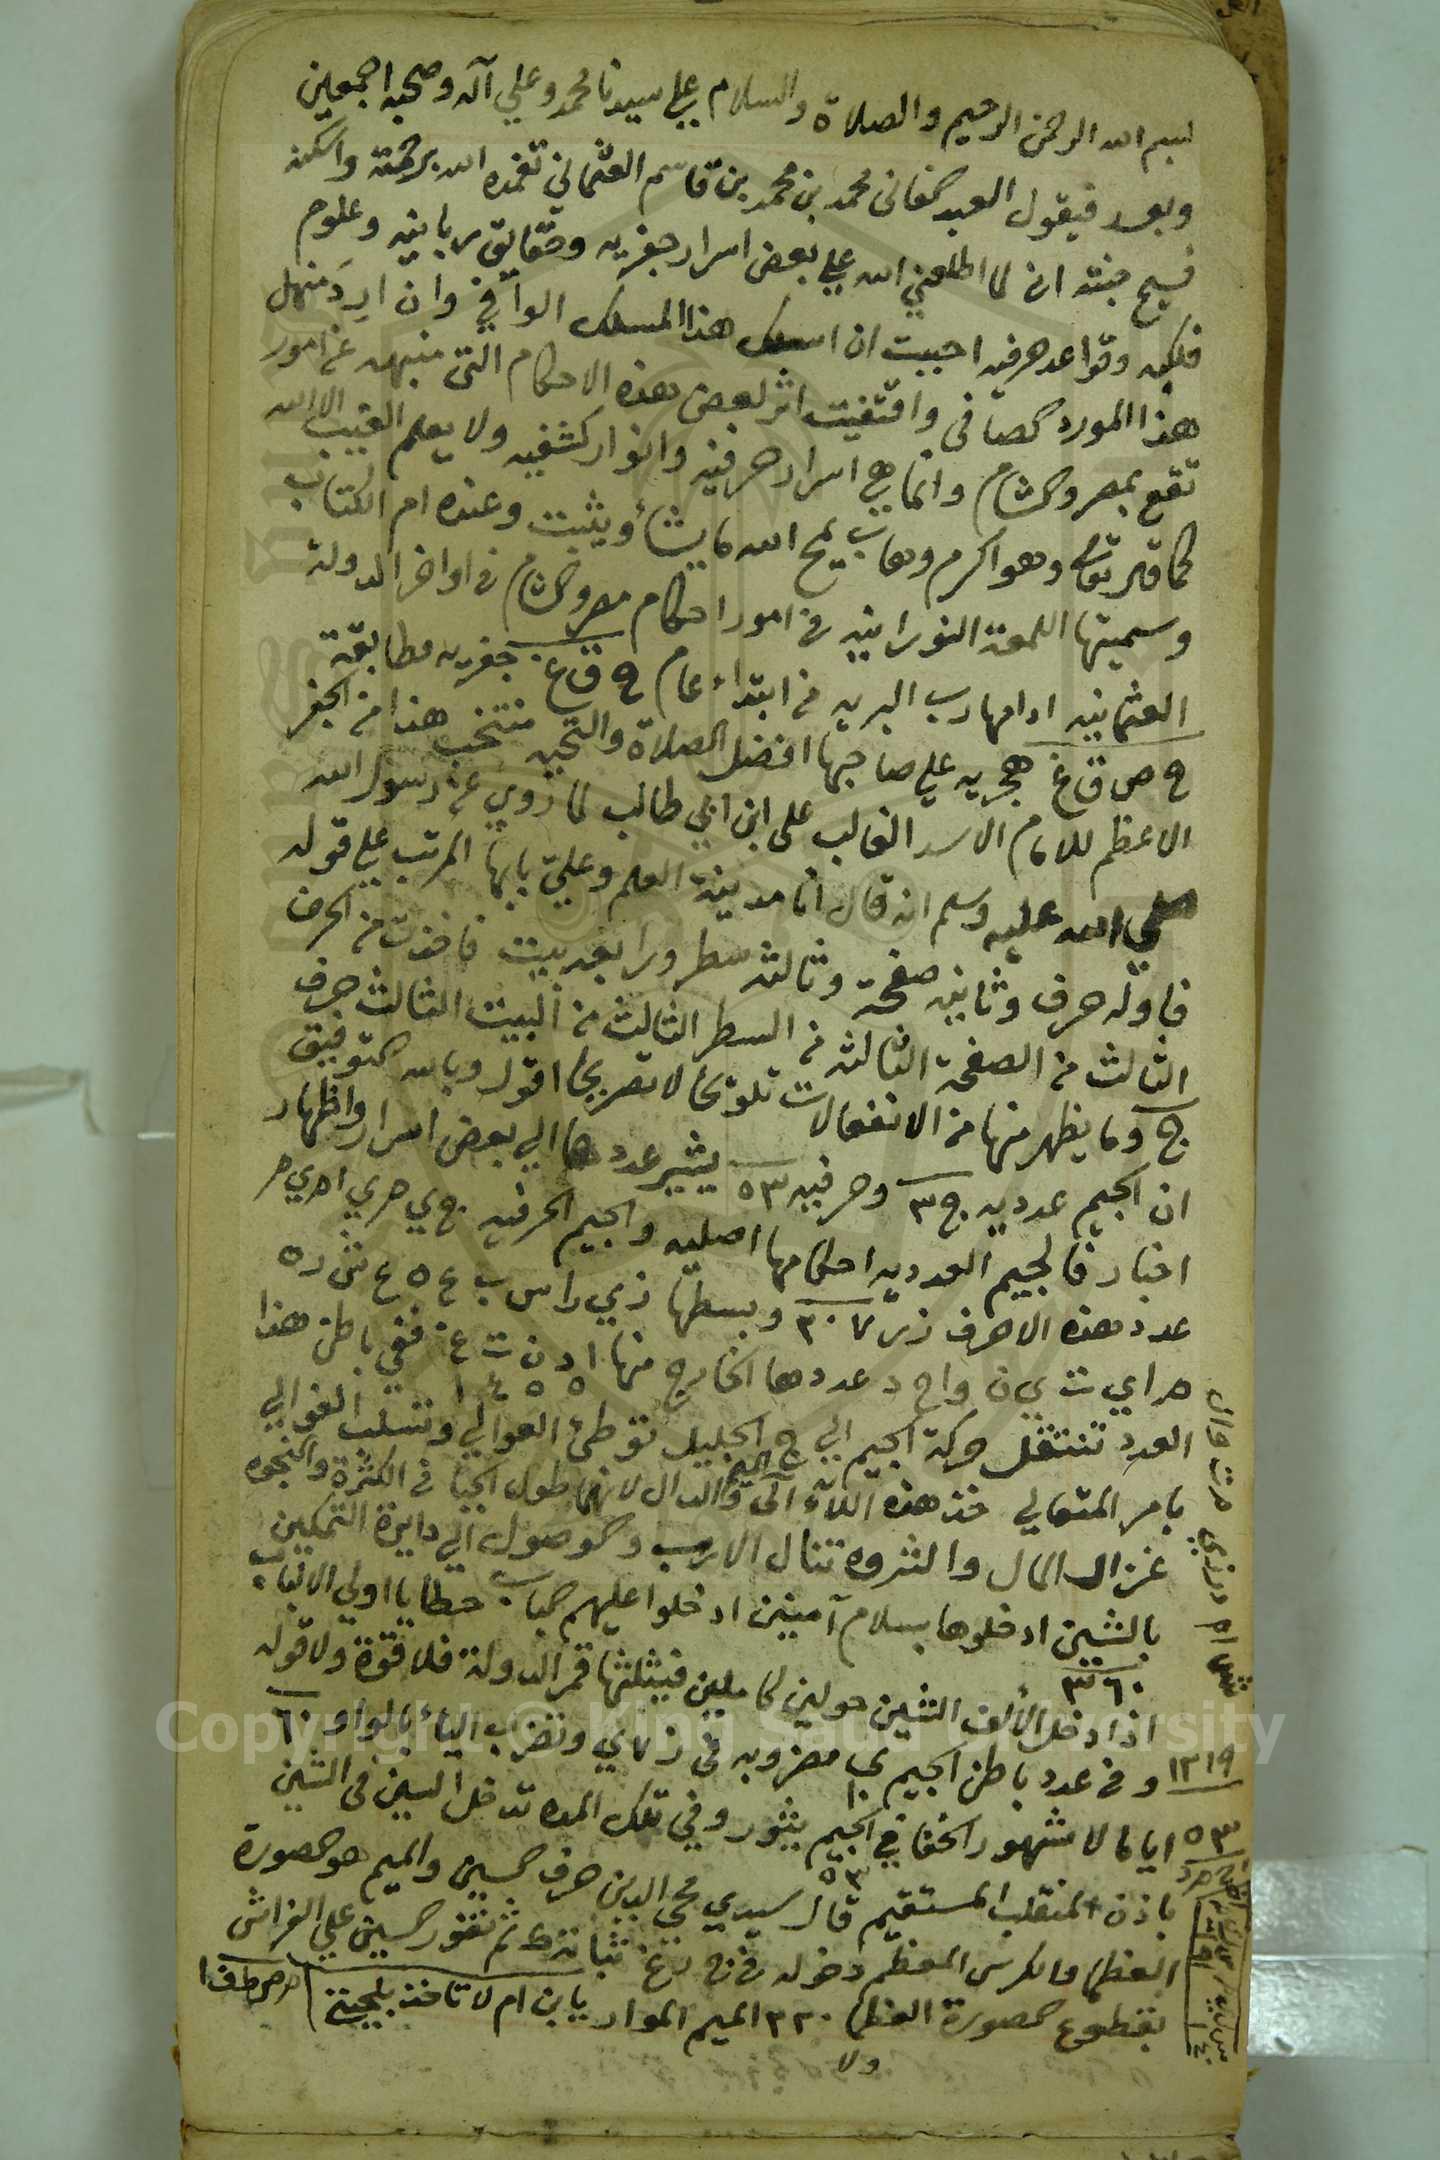 بسم الله الرحمن الرحيم والصلاة والسلام علي سيدنا محمد وعلي آله وصحبه اجمعين
وبعد فيقول العبد محمد بن محمد بن قاسم العثماني تغمده الله برحمته واسكنه
فسيح جنته ان لما اطلعني الله علي بعض اسرار جفريه وحقايق ربانيه وعلوم
فلكيه وقواعد حرفيه احببت ان اسلك هذا المسلك الوافي وان ارد منهل
هذا المورد الصافي واقتفيت اثر بعض هذه الاحكام التي منبهه عن امور
تقع بمصر والشام وانما هي اسرار حرفيه وانوار كشفيه ولا يعلم الغيب الا الله
كما قال تعالى وهو اكرم وهاب يمح الله ما يشأ ويثبت وعنده ام الكتاب
وسميتها اللمعة النورانيه في امور احكام مصر والشام في اواخر الدولة
العثمانيه ادامها رب البريه من ابتداء عام ح ق غ جفريه مطابقة
ح ص ق غ هجريه علي صاحبها افضل الصلاة والتحيه منتخب هذا من الجفر
الاعظم للامام الاسد الغالب على ابن ابي طالب لما روي عن رسول الله
صلي الله عليه وسلم انه قال انا مدينة العلم وعليّ بابها المرتب علي قوله
فاوله حرف وثانيه صفحة وثالثه سطر ورابعه بيت فاخذت من الحرف
الثالث من الصفحة الثالثه من السطر الثالث من البيت الثالث حرف
ج وما يظهر منها من الانفعالات تلويحا لا تصريحا اقول وبالله التوفيق
ان الجيم عدديه ج ٣ وحرفيه ٥٣ يشير عددها الي بعض اسرار واظهار
اخبار فالجيم العدديه احكامها اصليه والجيم الحرفيه ج ي م ي ا م ي م
عدد هذه الاحرف ز ش ٣٠٧ وبسطها زي راس ب ع ه ع ش ر ه
م ا ي ت ي ن واح د عددها الخارج منها ا د ن ت ع ففي باطن هذا
العدد تنتقل حركة الجيم الي ج الجليل توطئ العوالي وتسلب الغوالي
بامر المتعالي خذ هذه اللآء آلى والدال لانها طول الجيم في الكثرة والنجوه
غزال المال والثروه تنال الارب والوصول الي دايرة التمكين
بالشين ادخلوها بسلام آمنين ادخلوا عليهم الباب حطا يا اولي الالباب
٣٦٠
اذا دخل الألف الشين حولين كاملين فيثلثها قمر الدولة فلا قوة ولا قوله
١٣١٩ و في عدد باطن الجيم ي مضروبه في ز لاي وتضرب الياء بالواو ٦٠
٥٣ اياما لا شهور الخفا في الجيم يثور وفي تلك المده تدخل السين في الشين
باذن المنقلب المستقيم قال سيدي محي الدين حرف السين والميم هو الصورة
العظما والكرسي المعظم دخوله في ج ثم تغور السين علي الفراش
بقطوع الصورة العظما ٣٢٠ الميم الموار يا بن ام لا تاخذ بلحيتي
ولا